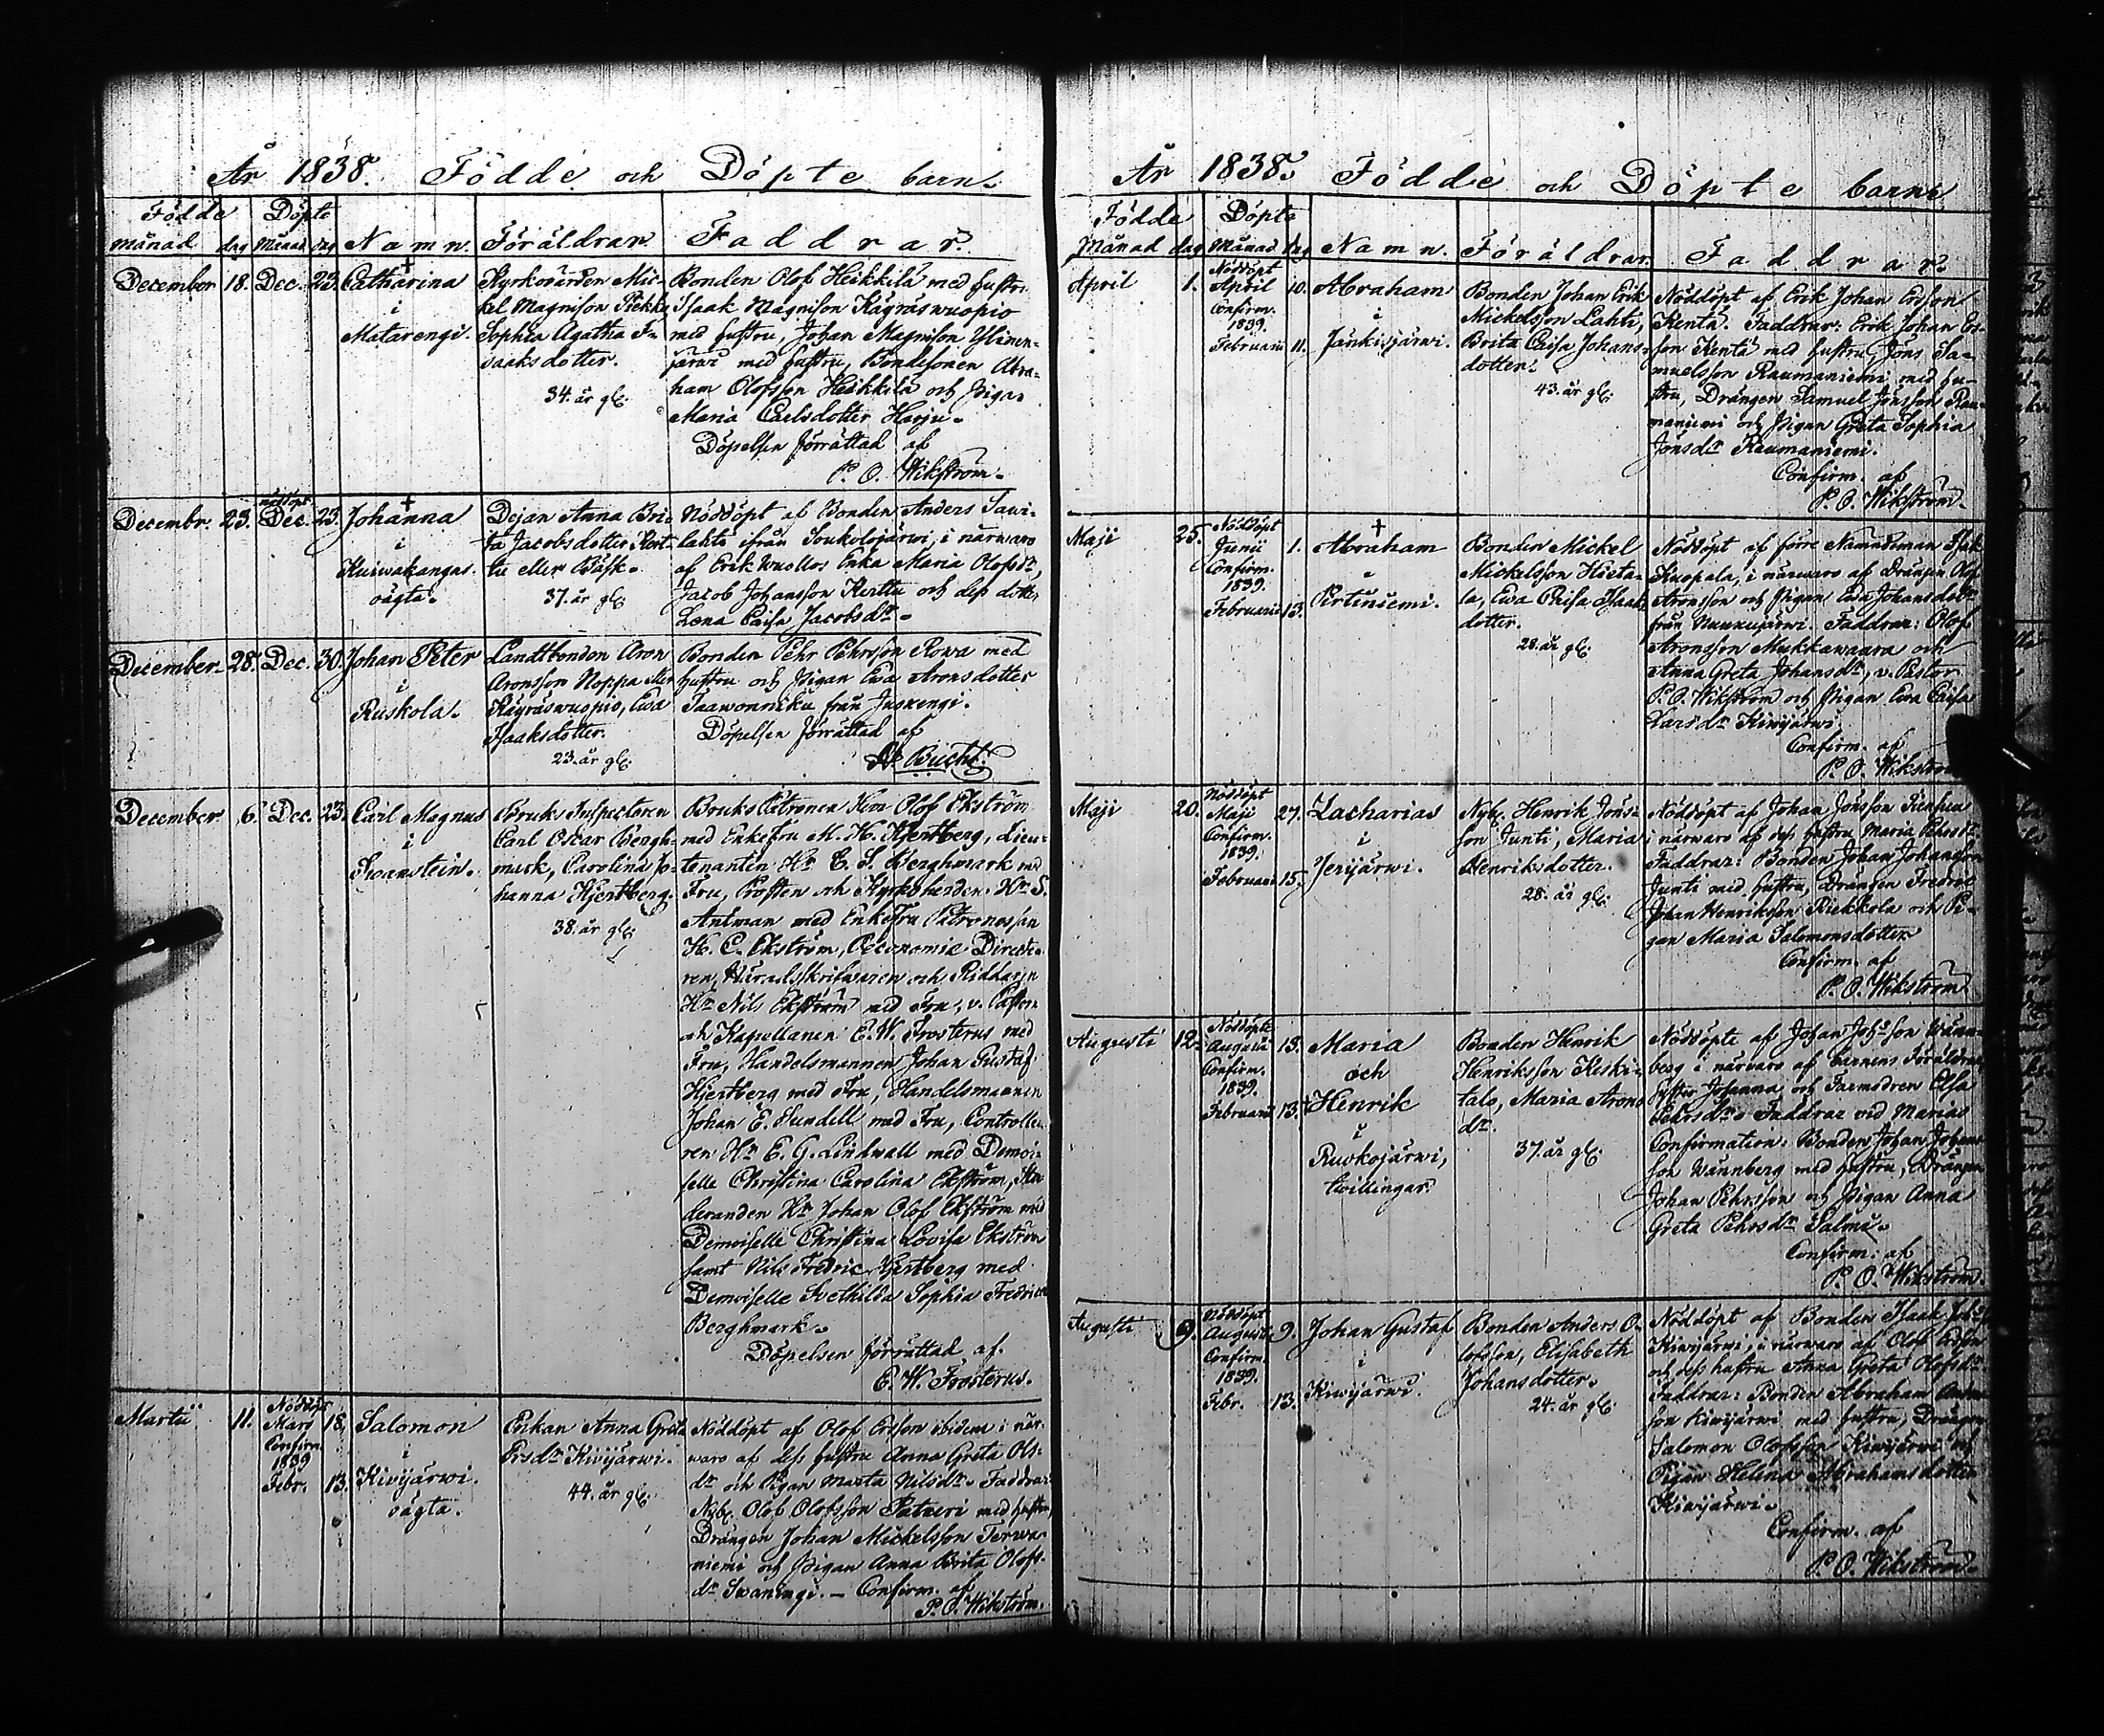 År 1838. Födde och Döpte barn.
Födde Döpte
månad dag Månad dag Namn. Föräldrar. Faddrar.
December 18. Dec. 23. Catharina
i
Matarengi.
Kyrkovärden Mic-
kel Magnisson Piekko
Sophia Agatha I-
saaksdotter.
34. år gl.
Bonden Olof Heikkilä med hustru
Isaak Magnisson Kägräswuopio
med hustru, Johan Magnisson Ylinen-
järwi med hustru, Bondesonen Abra-
ham Olofsson Heikkilä och Pigan
Maria Carlsdotter Harju.
Döpelsen förrättad af
P. O. Wikström.
Decembr. 23. nöddöpt Dec. 23. Johanna
i
Kuiwakangas.
oägta.
Dejan Anna Bri-
ta Jacobsdotter Kert-
tu eller Bäsk.
37. år gl.
Nöddöpt af Bonden Anders Sawi-
lahti ifrån Soukolojärwi, i närwaro
af Erik Wuollos Enka Maria Olofsdr,
Jacob Johansson Kerttu och dess dotter
Lena Caisa Jacobsdr.
December 28. Dec. 30. Johan Peter
i
Ruskola.
Landtbonden Aron
Aronsson Noppa eller
Kägräswuopio, Ewa
Isaaksdotter.
23. år gl.
Bonden Pehr Pehrsson Rowa med
hustru och Pigan Ewa Aronsdotter
Taawonniku från Juoxengi.
Döpelsen förrättad af
Bucht.
December 6. Dec. 23. Carl Magnus
i
Svanstein.
Bruks Inspectoren
Carl Oscar Bergh-
mark, Carolina Jo-
hanna Hjertberg.
38. år gl.
Bruks Patronen Herr Olof Ekström
med EnkeFru M. H. Hjertberg, Lieu-
tenanten Hr C. S. Berghmark med
Fru, Prosten och Kyrkoherden Hr S.
Antman med EnkeFru Patronessan
H. C. Ekström, Oeconomie Directeu-
ren, Häradsskrifwaren och Riddaren
Hr Nils Ekström med Fru, v. Pastorn
och Kapellanen E. W. Frosterus med
Fru, Handelsmannen Johan Gustaf
Hjertberg med Fru, Handelsmannen
Johan E. Sundell med Fru, Controlleu-
ren Hr E. G. Lindwall med Demoi-
selle Christina Carolina Ekström, Stu-
deranden Hr Johan Olof Ekström med
Demoiselle Christina Lovisa Ekström
samt Nils Fredric Hjertberg med
Demoiselle Sophia Fredrica
Berghmark.
Döpelsen förrättad af.
E. W. Frosterus.
Martii 11. Nöddöpt
Mars 18.
Confirm.
1839
Febr. 13.
Salomon
i
Kiwijärwi.
oägta.
Enkan Anna Greta
Ersdr Kiwijärwi.
44. år gl.
Nöddöpt af Olof Ersson ibidem i när-
waro af dess hustru Anna Greta Ols-
dr och Pigan Marta Nilsdr. Faddrar
Nyb. Olof Olofsson med hustru,
Drängen Johan Mickelsson Terwa-
niemi och Pigan Anna Brita Olofs-
dr Swanengi. — Confirm. af
P. O. Wikström.
År 1838. Födde och Döpte barn.
Födde Döpte
Månad dag Månad dag Namn. Föräldrar. Faddrar.
April 1. Nöddöpt
April 10.
Confirm.
1839.
Februarii 11.
Abraham
i
Jänkisjärwi.
Bonden Johan Erik
Mickelsson Lahti,
Brita Caisa Johans-
dotter.
43. år gl.
Nöddöpt af Erik Johan Ersson
Kenta. Faddrar: Erik Johan Ers-
son Kenta med hustru, Jöns Sa-
muelsson Raumaniemi med hu-
stru, Drängen Samuel Jönsson Rau-
maniemi och Pigan Greta Sophia
Jönsdr Raumaniemi.
Confirm. af
P. O. Wikström.
Maji 25. Nöddöpt
Junii 1.
Confirm.
1839.
Februarii 13.
Abraham
i
Pirtiniemi.
Bonden Mickel
Mickelsson Hieta-
la, Ewa Caisa Isaaks-
dotter.
28. år gl.
Nöddöpt af förre Nämndeman Isak
Kuoppala, i närwaro af Drängen Olof
Aronsson och Pigan Ewa Johansdotter
från Nuuxujärwi. Faddrar: Olof
Aronsson Mukkawaara och
Anna Greta Johansdr, v. Pastor
P. O. Wikström och Pigan Ewa Caisa
Larsdr Kiwijärwi.
Confirm. af
P. O. Wikström
Maji 20. Nöddöpt
Maji 27.
Confirm.
1839.
Februarii 15.
Zacharias
i
Jerijärwi.
Nyb. Henrik Jöns-
son Junti, Maria
Henriksdotter.
28. år gl.
Nöddöpt af Johan Jönsson
i närwaro af dess hustru Maria Pehrsdr
Faddrar: Bonden Johan Johansson
Junti med hustru, Drängen Fredric
Johan Henriksson Riekkola och Pi-
gan Maria Salomonsdotter
Confirm. af
P. O. Wikström
Augusti 12. Nöddöpte
Augusti 13.
Confirm.
1839.
Februarii 13.
Maria
och
Henrik
i
Ruokojärwi,
twillingar.
Bonden Henrik
Henriksson Keski-
talo, Maria Arons-
dr.
37. år gl.
Nöddöpte af Johan Johsson Wänn-
berg i närwaro af barnens Föräldrar
Syster Johanna och Farmodren Elsa
Pehrsdr. Faddrar vid Marias
Confirmation: Bonden Johan Johans-
son Wännberg med hustru, Drängen
Johan Pehrsson och Pigan Anna
Greta Pehrsdr Salmi.
Confirm. af
P. O. Wikström
Augusti 9. Nöddöpt
Augusti 9.
Confirm.
1839.
Febr. 13.
Johan Gustaf
i
Kiwijärwi.
Bonden Anders O-
lofsson, Elisabeth
Johansdotter.
24. år gl.
Nöddöpt af Bonden Isaak
Kiwijärwi, i närwaro af Olof Ersson
och dess hustru Anna Greta Olofsdr
Faddrar: Bonden Abraham Anders-
son Kiwijärwi med hustru, Drängen
Salomon Olofsson Kiwijärwi och
Pigan Helena Abrahamsdotter
Kiwijärwi.
Confirm. af
P. O. Wikström.